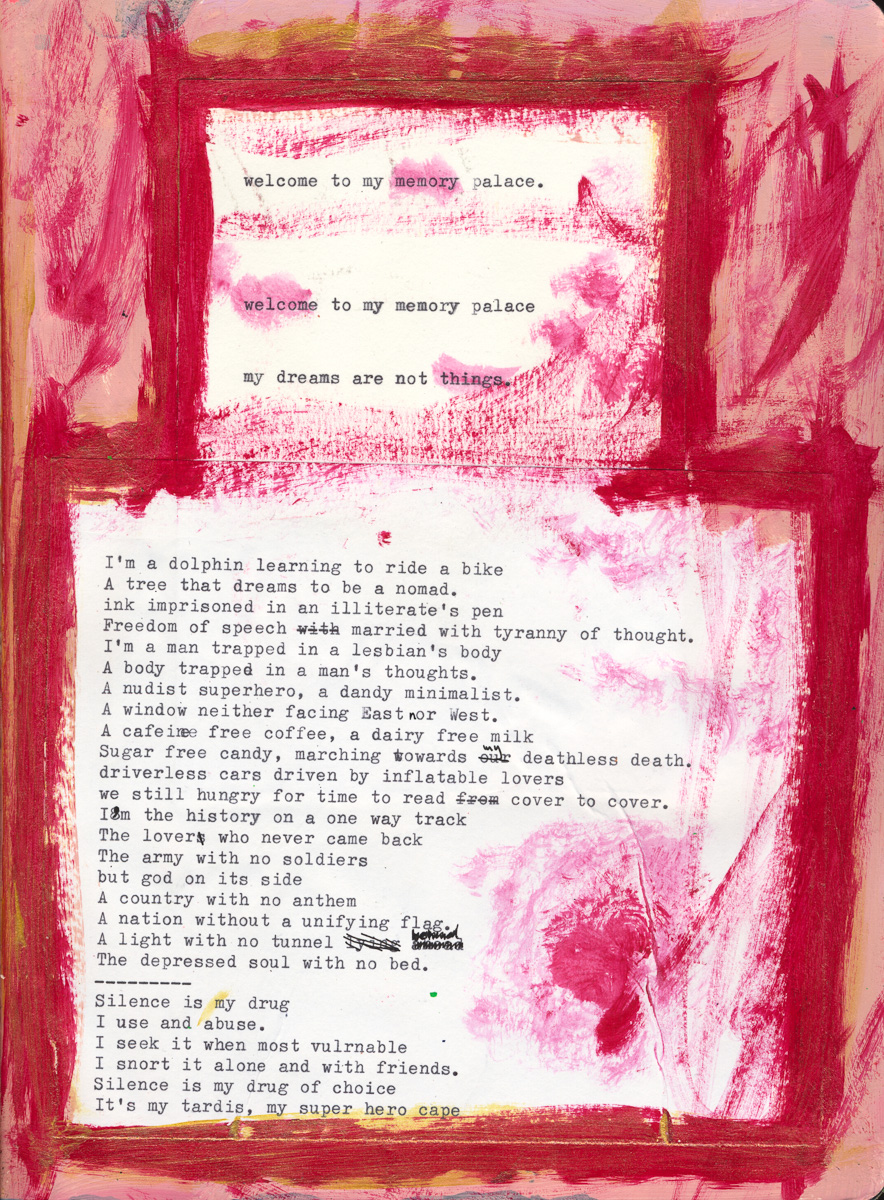 welcome to my memory palace.
welcome to my memory palace
my dreams are not things.
I'm a dolphin learning to ride a bike
A tree that dreams to be a nomad.
ink imprisoned in an illiterate's pen
Freedom of speech with married with tyranny of thought.
I'm a man trapped in a lesbian's body
A body trapped in a man's thoughts.
A nudist superhero, a dandy minimalist.
A window neither facing East nor West.
A cafeine free coffee, a dairy free milk
Sugar free candy, marching towards our my deathless death.
driverless cars driven by inflatable lovers
we still hungry for time to read from cover to cover.
I'm the history on a one way track
The lovers who never came back
The army with no soldiers
but god on its side
A country with no anthem
A nation without a unifying flag.
A light with no tunnel behind
The depressed soul with no bed.
---------
Silence is my drug
I use and abuse.
I seek it when most vulrnable
I snort it alone and with friends.
Silence is my drug of choice
It's my tardis, my super hero cape